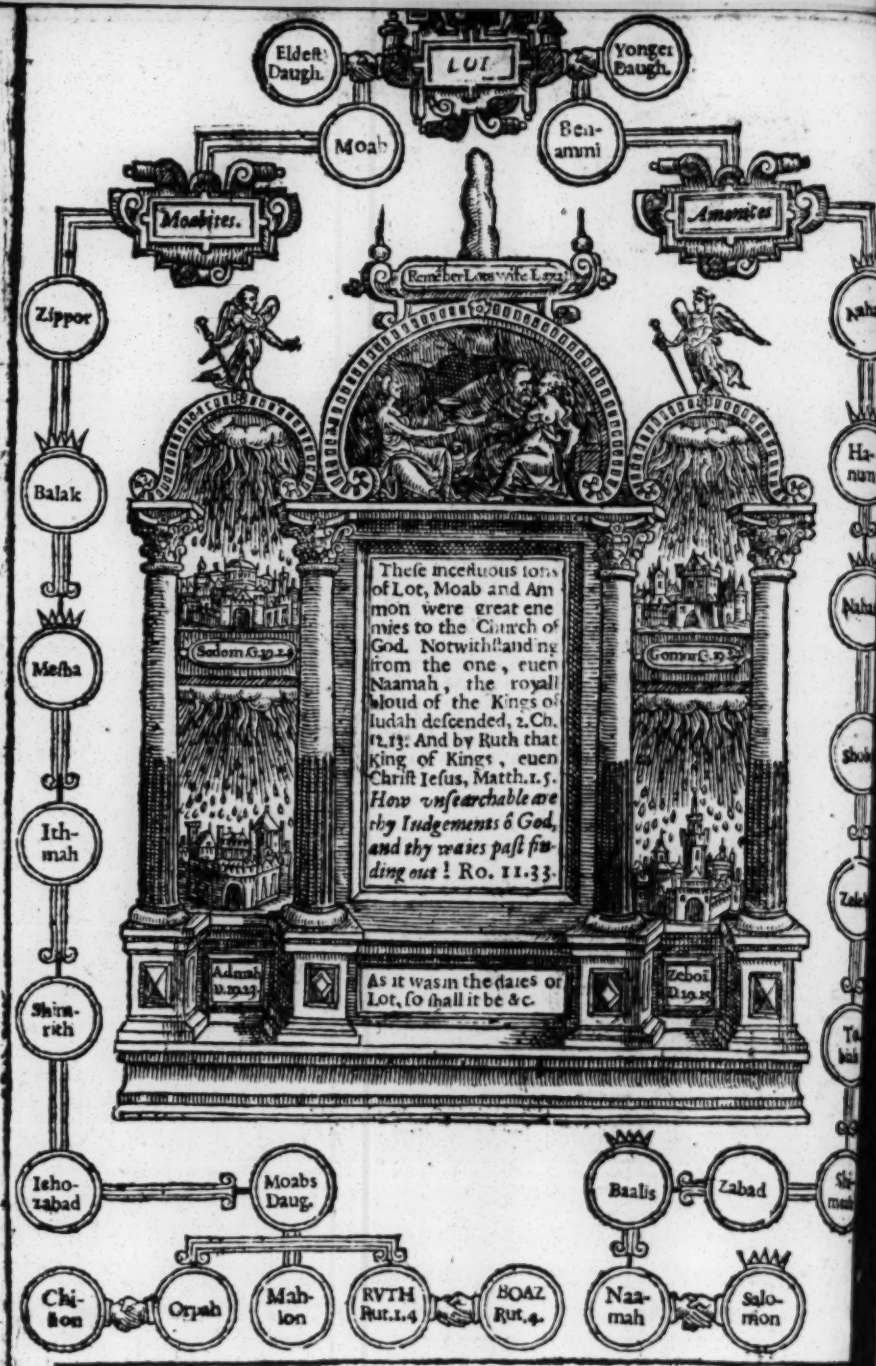 Eldest
Daugh.
LOT
Yonger
Daugh.
Moab
Ben-
ammi
Moabites.
Amonites
Remēber Lots wife L.
Zippor
Balak
Mesha
Ith-
mah
Shim-
rith
Ieho-
zabad
Moabs
Daug.
Chi-
lion
Orpah
Mah-
lon
RVTH
Rut.1.4
BOAZ
Rut.4.
Sodom.G.19.24
Gomor G.19.
These incestuous sons
of Lot, Moab and Am
mon were great ene
mies to the Church of
God. Notwithstanding
from the one, euen
Naamah, the royall
bloud of the Kings of
Iudah descended, 2.Ch.
12.13: And by Ruth that
King of Kings, euen
Christ Iesus, Matth.1.5.
How vnsearchable are
thy Iudgements ô God,
and thy waies past fin-
ding out! Ro. 11.33.
Admah
D.29.23.
As it was in the daies of
Lot, so shall it be &c.
Zeboi
D.29.
Ha-
nun
Baalis
Zabad
Naa-
mah
Salo-
mon